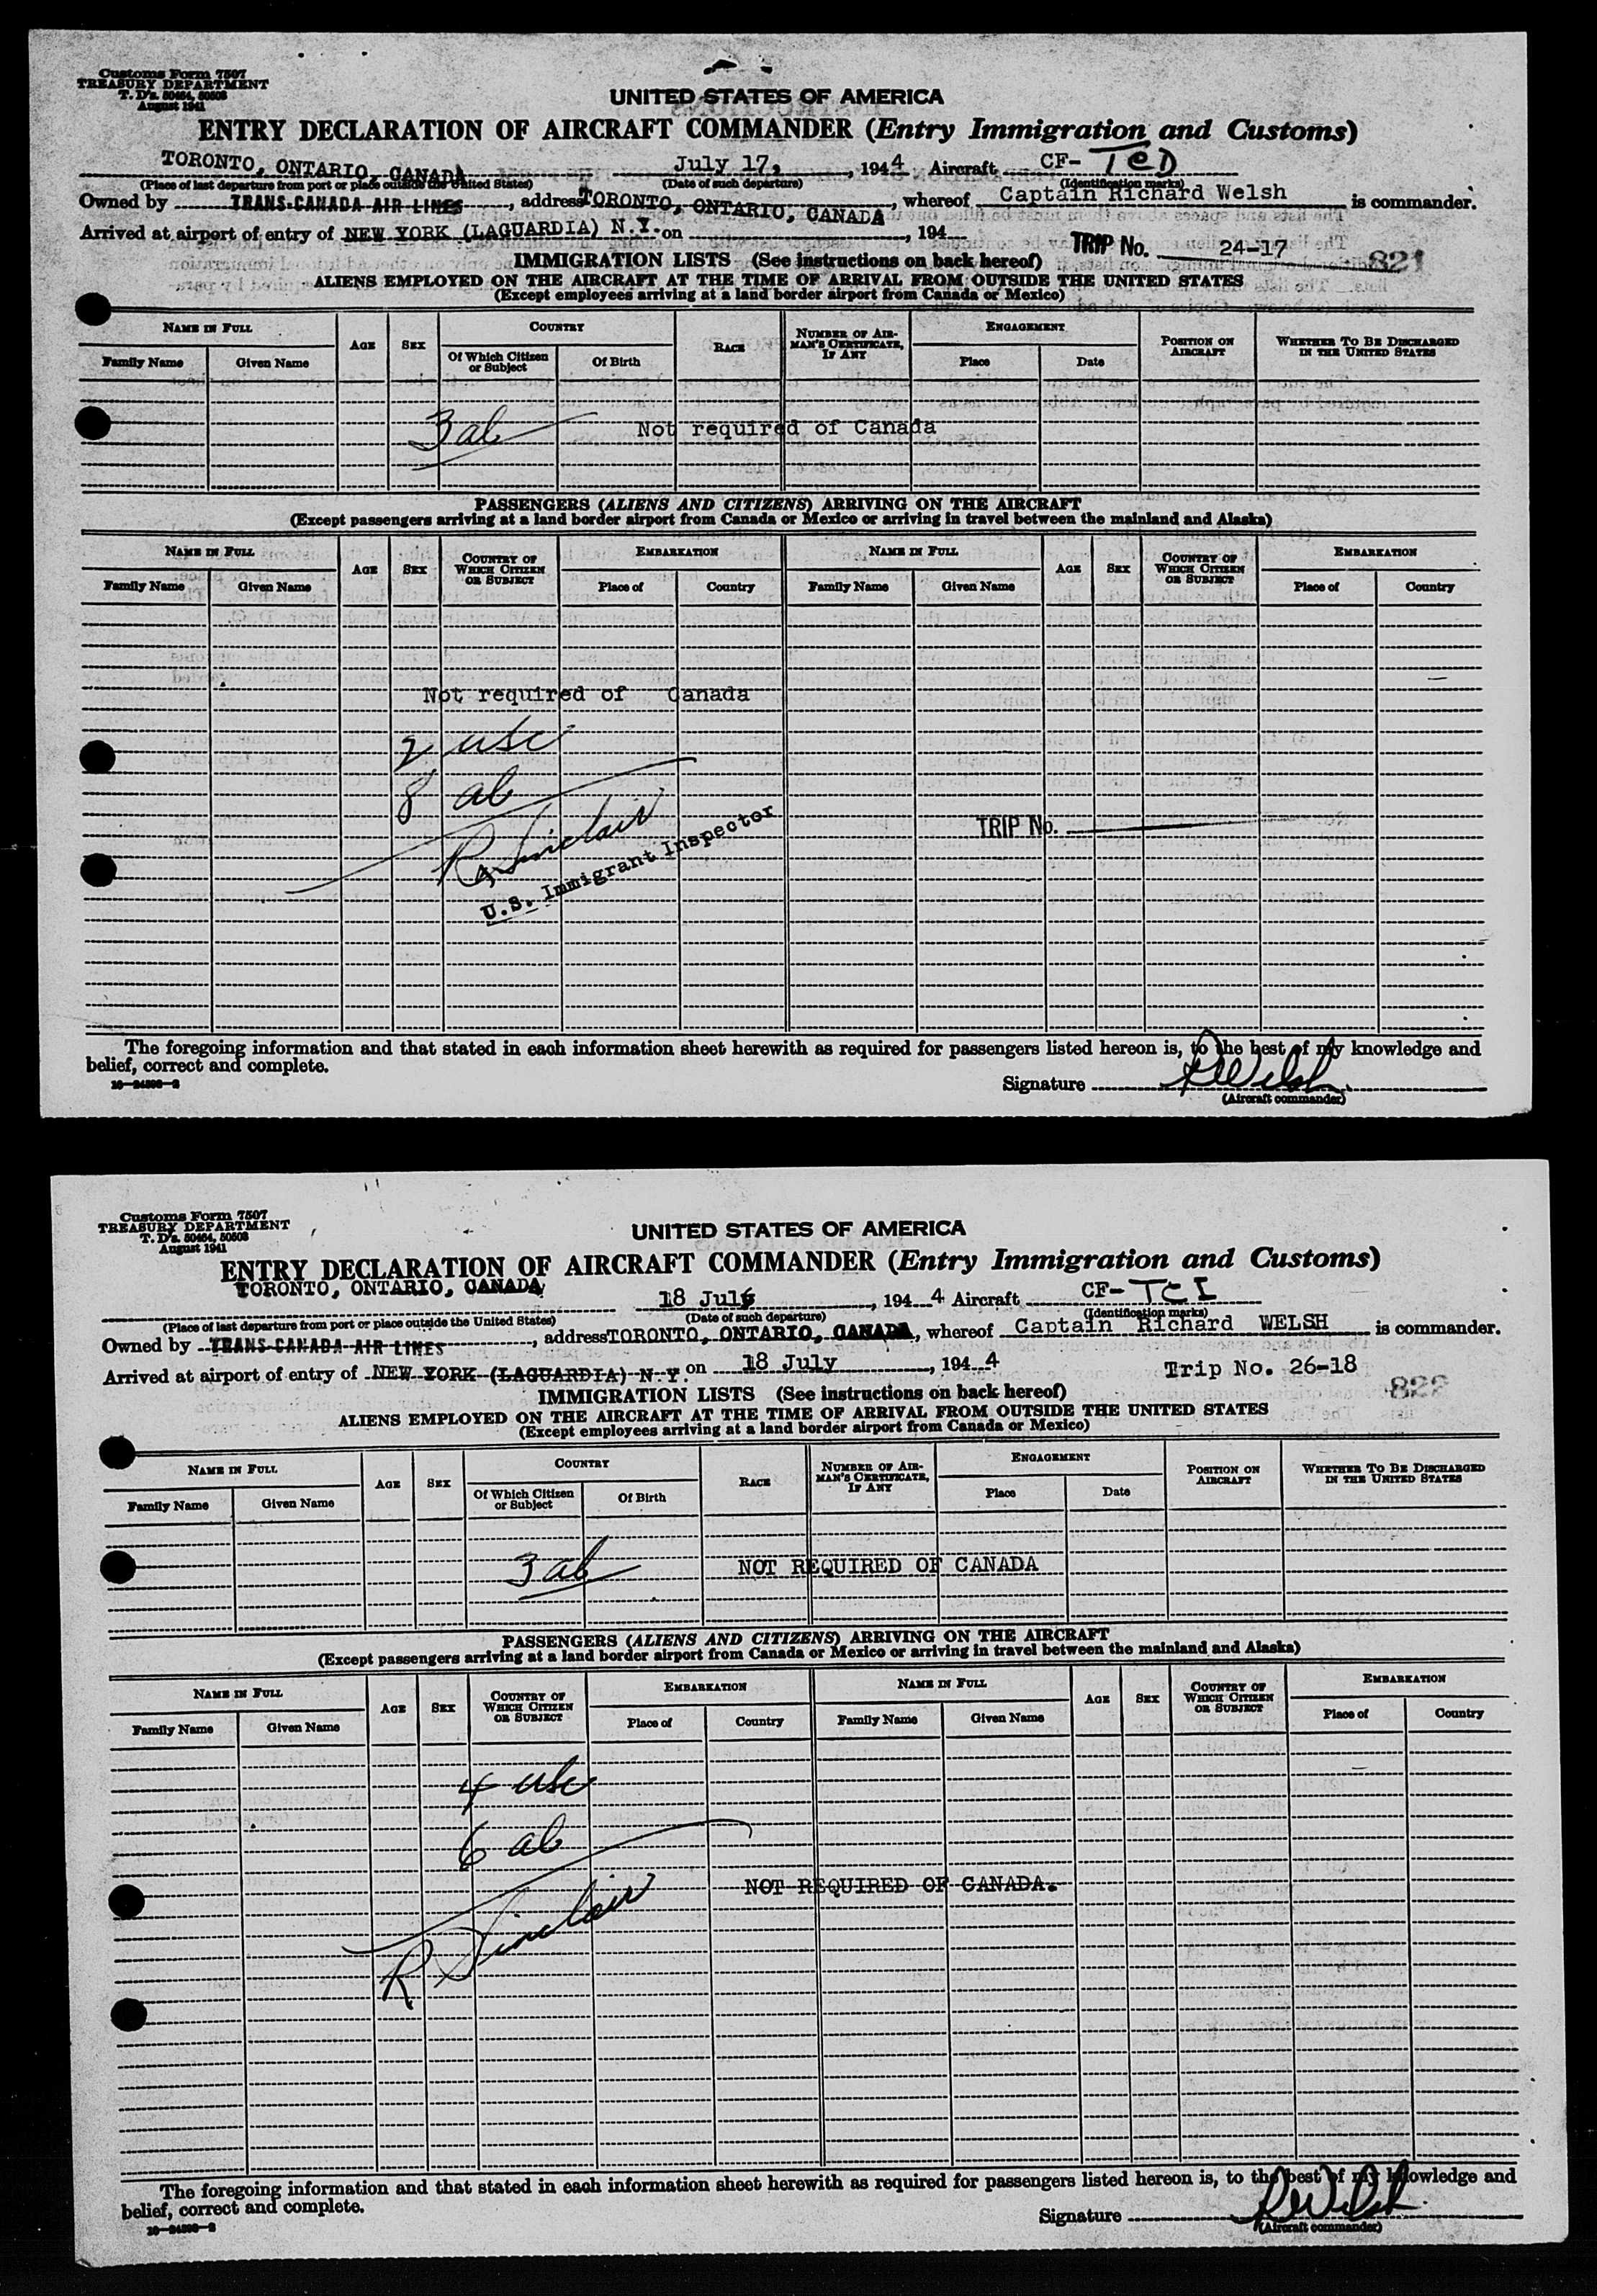 Customs Form 7507
TREASURY DEPARTMENT
T. D's. 50464, 50503
August 1941
UNITED STATES OF AMERICA
ENTRY DECLARATION OF AIRCRAFT COMMANDER (Entry Immigration and Customs)
TORONTO, ONTARIO, CANADA July 17, , 1944 Aircraft CF- TCD
(Place of last departure from port or place outside the United States) (Date of such departure) (Identification marks)
Owned by TRANS-CANADA AIR LINES , address TORONTO, ONTARIO, CANADA , whereof Captain Richard Welsh is commander.
Arrived at airport of entry of NEW YORK (LAGUARDIA) N.Y. on , 194
TRIP No. 24-17
821
IMMIGRATION LISTS (See instructions on back hereof)
ALIENS EMPLOYED ON THE AIRCRAFT AT THE TIME OF ARRIVAL FROM OUTSIDE THE UNITED STATES
(Except employees arriving at a land border airport from Canada or Mexico)
NAME IN FULL AGE SEX COUNTRY RACE NUMBER OF AIRMAN'S CERTIFICATE, IF ANY ENGAGEMENT POSITION ON AIRCRAFT WHETHER TO BE DISCHARGED IN THE UNITED STATES
Family Name Given Name Of Which Citizen or Subject Of Birth Place Date
3 al Not required of Canada
PASSENGERS (ALIENS AND CITIZENS) ARRIVING ON THE AIRCRAFT
(Except passengers arriving at a land border airport from Canada or Mexico or arriving in travel between the mainland and Alaska)
NAME IN FULL AGE SEX COUNTRY OF WHICH CITIZEN OR SUBJECT EMBARKATION NAME IN FULL AGE SEX COUNTRY OF WHICH CITIZEN OR SUBJECT EMBARKATION
Family Name Given Name Place of Country Family Name Given Name Place of Country
Not required of Canada
2 usc
8 al
R Sinclair
U.S. Immigrant Inspector
TRIP No.
The foregoing information and that stated in each information sheet herewith as required for passengers listed hereon is, to the best of my knowledge and
belief, correct and complete.
Signature R Welsh
(Aircraft commander)
Customs Form 7507
TREASURY DEPARTMENT
T. D's. 50464, 50503
August 1941
UNITED STATES OF AMERICA
ENTRY DECLARATION OF AIRCRAFT COMMANDER (Entry Immigration and Customs)
TORONTO, ONTARIO, CANADA 18 July , 1944 Aircraft CF- TCI
(Place of last departure from port or place outside the United States) (Date of such departure) (Identification marks)
Owned by TRANS-CANADA AIR LINES , address TORONTO, ONTARIO, CANADA , whereof Captain Richard WELSH is commander.
Arrived at airport of entry of NEW YORK (LAGUARDIA) N.Y. on 18 July , 1944
Trip No. 26-18
822
IMMIGRATION LISTS (See instructions on back hereof)
ALIENS EMPLOYED ON THE AIRCRAFT AT THE TIME OF ARRIVAL FROM OUTSIDE THE UNITED STATES
(Except employees arriving at a land border airport from Canada or Mexico)
NAME IN FULL AGE SEX COUNTRY RACE NUMBER OF AIRMAN'S CERTIFICATE, IF ANY ENGAGEMENT POSITION ON AIRCRAFT WHETHER TO BE DISCHARGED IN THE UNITED STATES
Family Name Given Name Of Which Citizen or Subject Of Birth Place Date
3 al NOT REQUIRED OF CANADA
PASSENGERS (ALIENS AND CITIZENS) ARRIVING ON THE AIRCRAFT
(Except passengers arriving at a land border airport from Canada or Mexico or arriving in travel between the mainland and Alaska)
NAME IN FULL AGE SEX COUNTRY OF WHICH CITIZEN OR SUBJECT EMBARKATION NAME IN FULL AGE SEX COUNTRY OF WHICH CITIZEN OR SUBJECT EMBARKATION
Family Name Given Name Place of Country Family Name Given Name Place of Country
4 usc
6 al
NOT REQUIRED OF CANADA.
R Sinclair
The foregoing information and that stated in each information sheet herewith as required for passengers listed hereon is, to the best of my knowledge and
belief, correct and complete.
Signature R Welsh
(Aircraft commander)